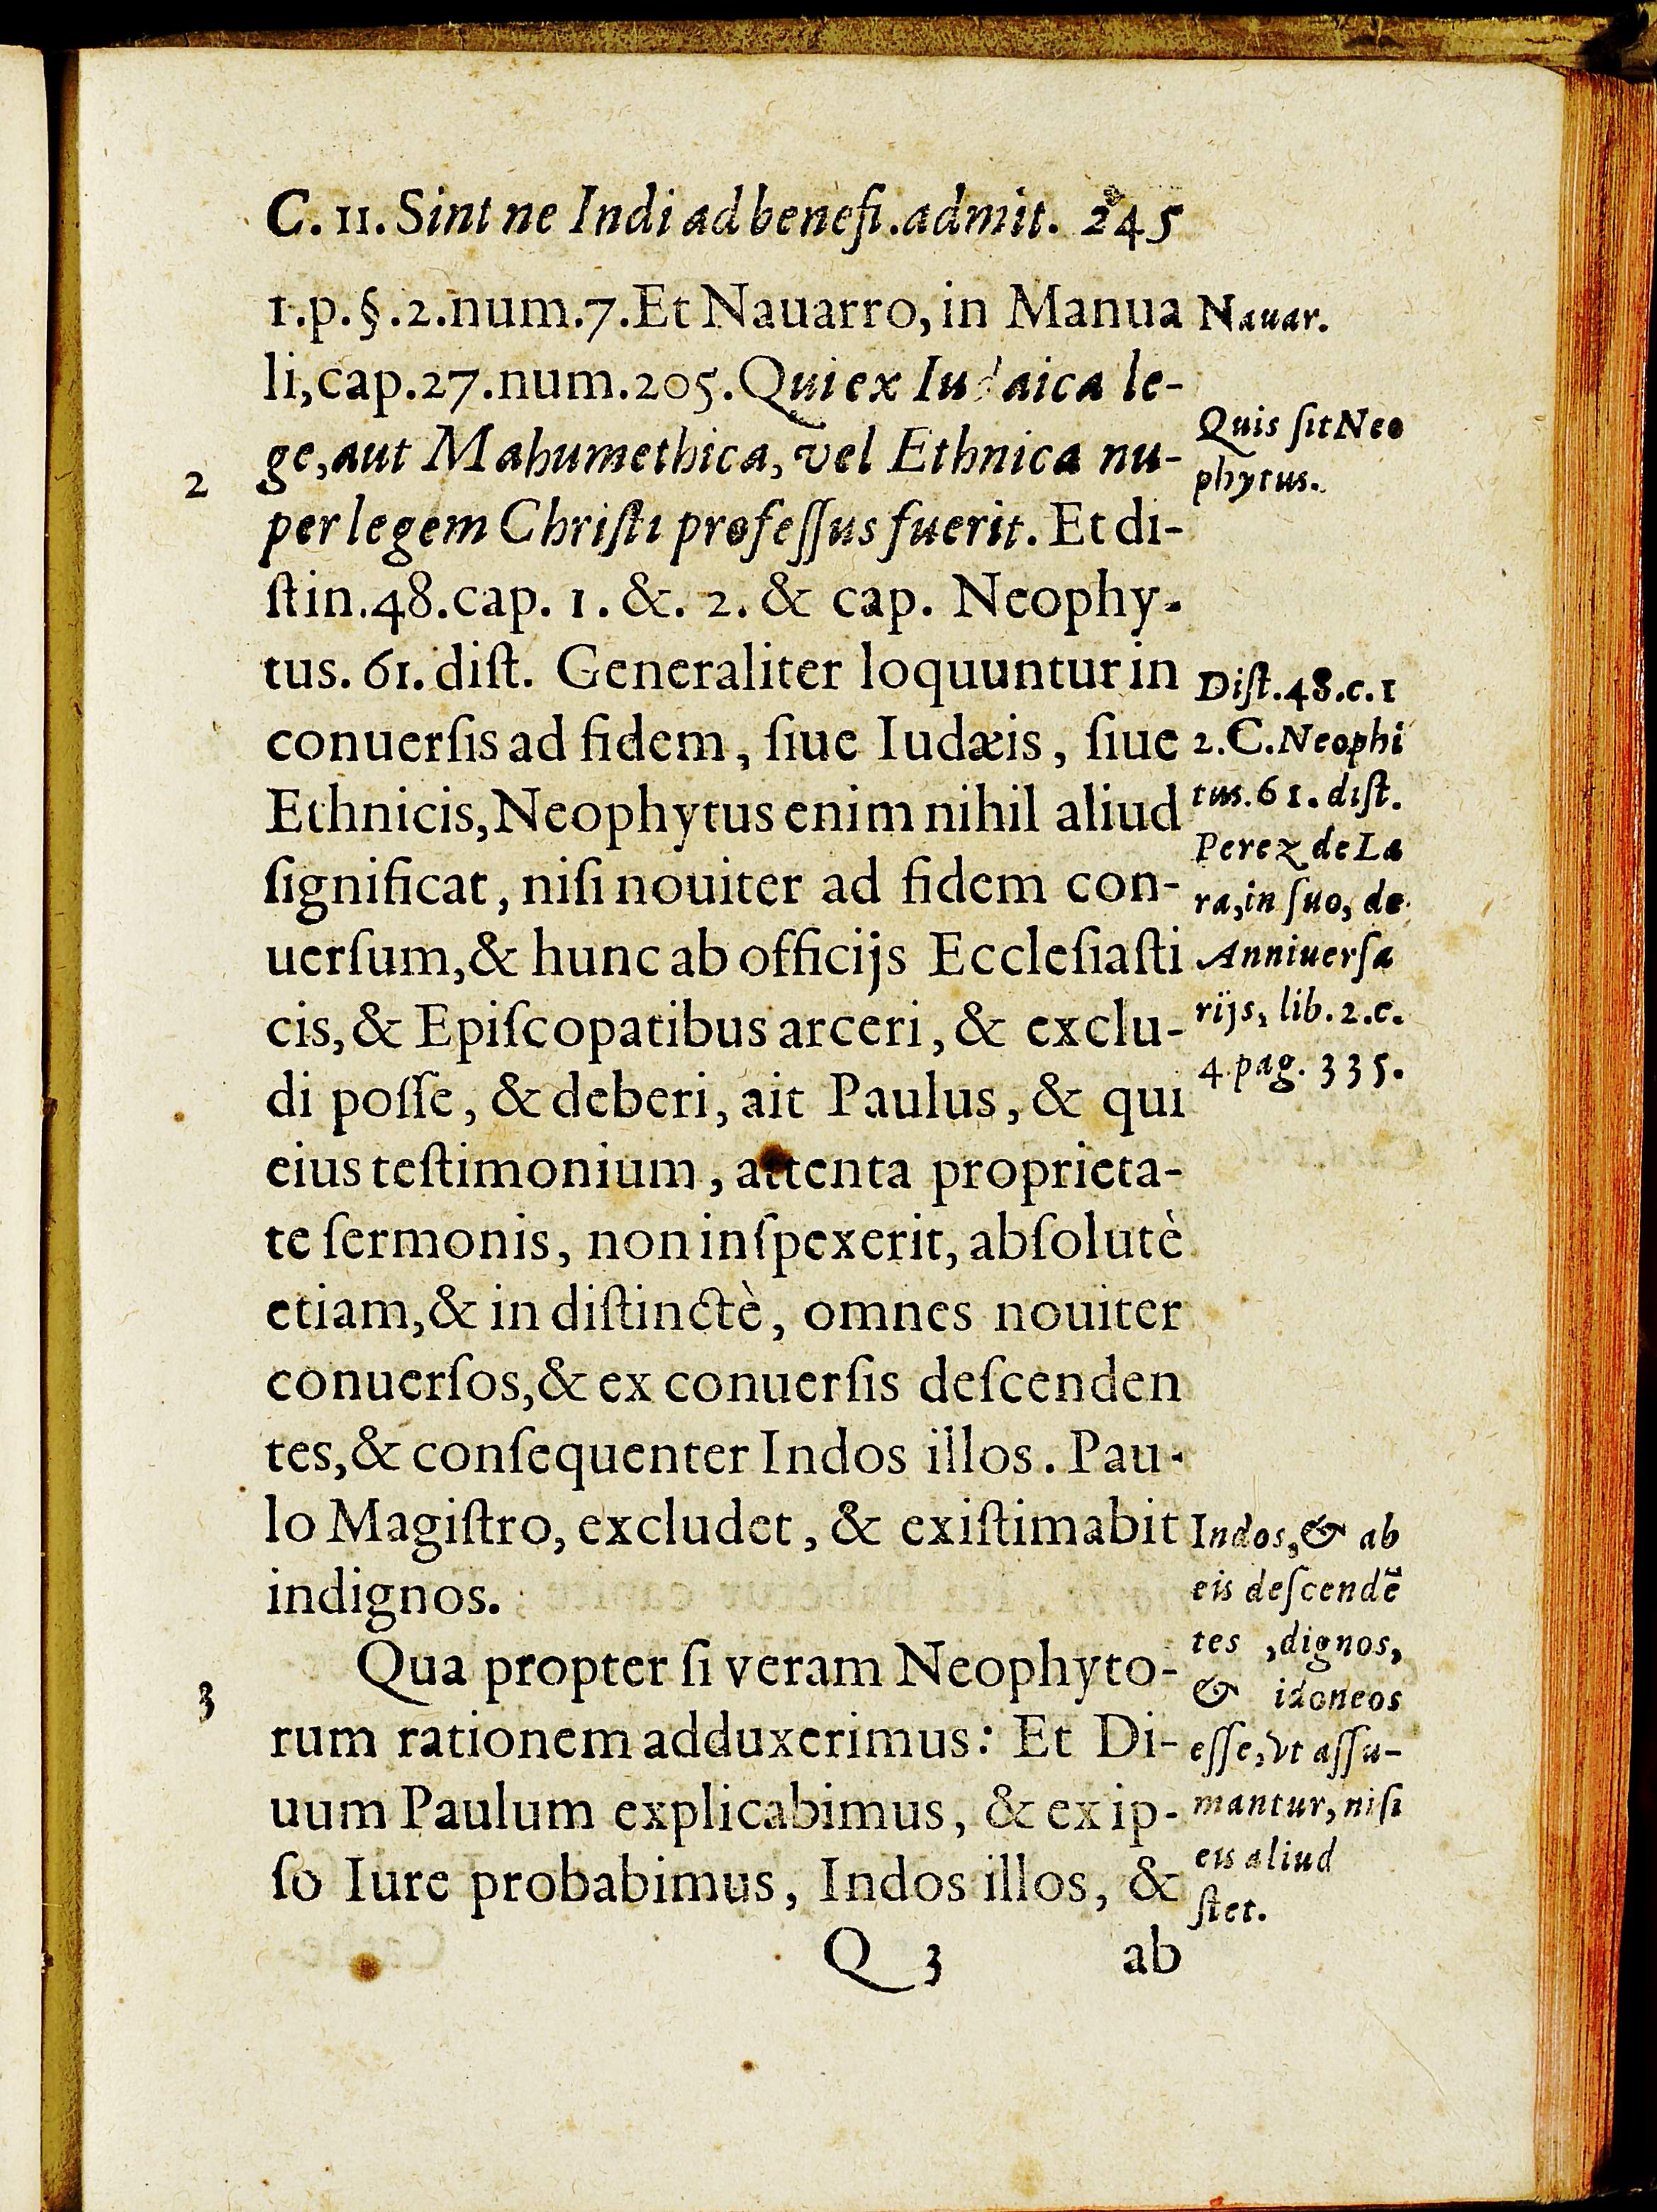 C. 11. Sint ne Indi ad benefi. admit. 245
1.p.§.2.num.7.Et Nauarro, in Manua
li, cap.27.num.205. Qui ex Iudaica le-
ge, aut Mahumethica, vel Ethnica nu-
per legem Chriſti profeſſus fuerit. Et di-
ſtin.48.cap. 1. &. 2. & cap. Neophy-
tus. 61. diſt. Generaliter loquuntur in
conuerſis ad fidem, ſiue Iudæis, ſiue
Ethnicis, Neophytus enim nihil aliud
ſignificat, niſi nouiter ad fidem con-
uerſum, & hunc ab officijs Eccleſiaſti
cis, & Epiſcopatibus arceri, & exclu-
di poſſe, & deberi, ait Paulus, & qui
eius teſtimonium, attenta proprieta-
te ſermonis, non inſpexerit, abſolutè
etiam, & in diſtinctè, omnes nouiter
conuerſos, & ex conuerſis deſcenden
tes, & conſequenter Indos illos. Pau-
lo Magiſtro, excludet, & exiſtimabit
indignos.
Qua propter ſi veram Neophyto-
rum rationem adduxerimus: Et Di-
uum Paulum explicabimus, & ex ip-
ſo Iure probabimus, Indos illos, &
Q 3 ab
2
3
Nauar.
Quis ſit Neo
phytus.
Diſt.48.c.1
2.C.Neophi
tus.61.diſt.
Perez de La
ra, in ſuo, de
Anniuerſa
rijs, lib.2.c.
4.pag. 335.
Indos, & ab
eis deſcendẽ
tes, dignos,
& idoneos
eſſe, vt aſſu-
mantur, niſi
eis aliud
ſtet.